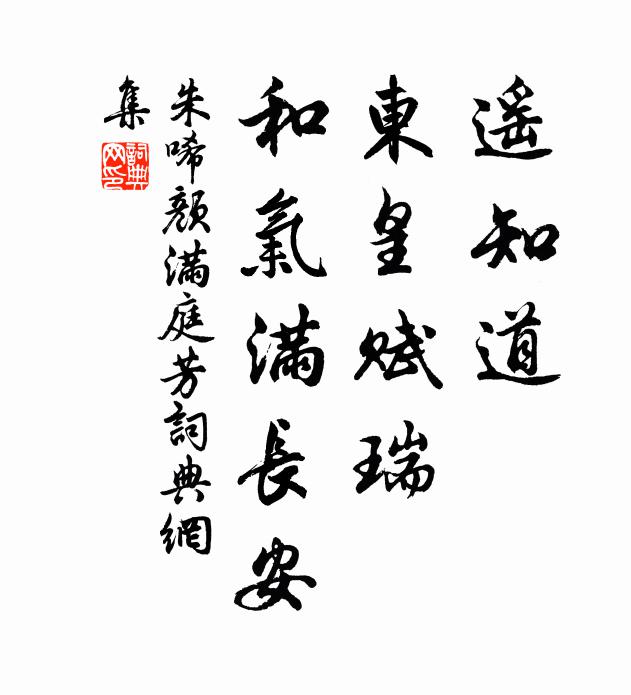 遥知道
東皇賦瑞
和氣滿長安
朱唏顏滿庭芳詞典網
集
詞典网印